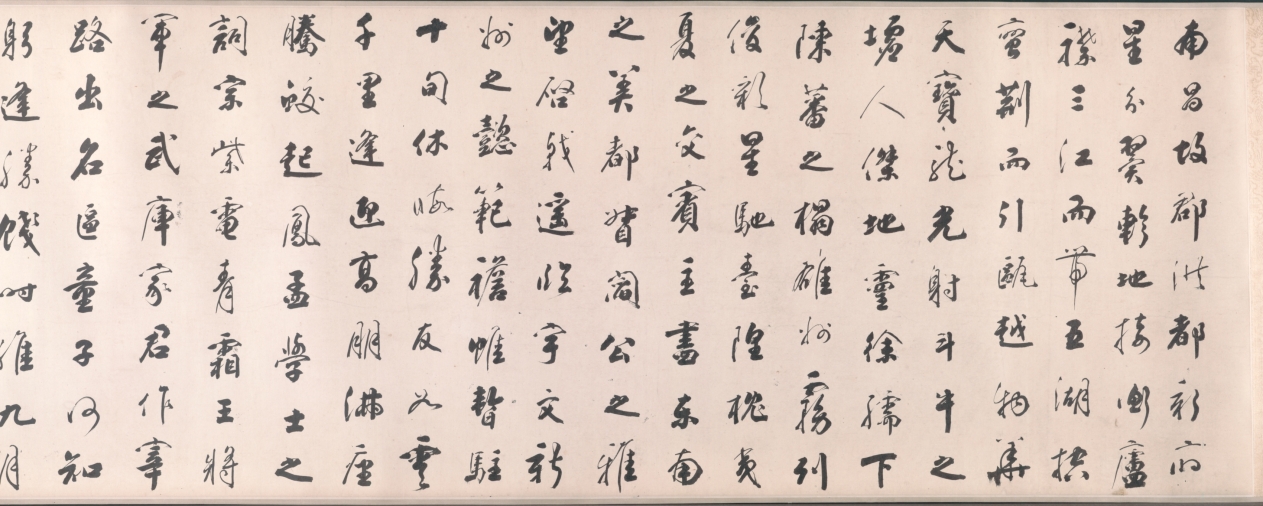 南昌故郡洪都新府
星分翼軫地接衡廬
襟三江而帶五湖控
蠻荊而引甌越物華
天寶龍光射斗牛之
墟人傑地靈徐孺下
陳蕃之榻雄州霧列
俊彩星馳臺隍枕夷
夏之交賓主盡東南
之美都督閻公之雅
望啓戟遙臨宇文新
州之懿範襜帷暫駐
十旬休暇勝友如雲
千里逢迎高朋滿座
騰蛟起鳳孟學士之
詞宗紫電青霜王將
軍之武庫家君作宰
路出名區童子何知
躬逢勝餞時維九月